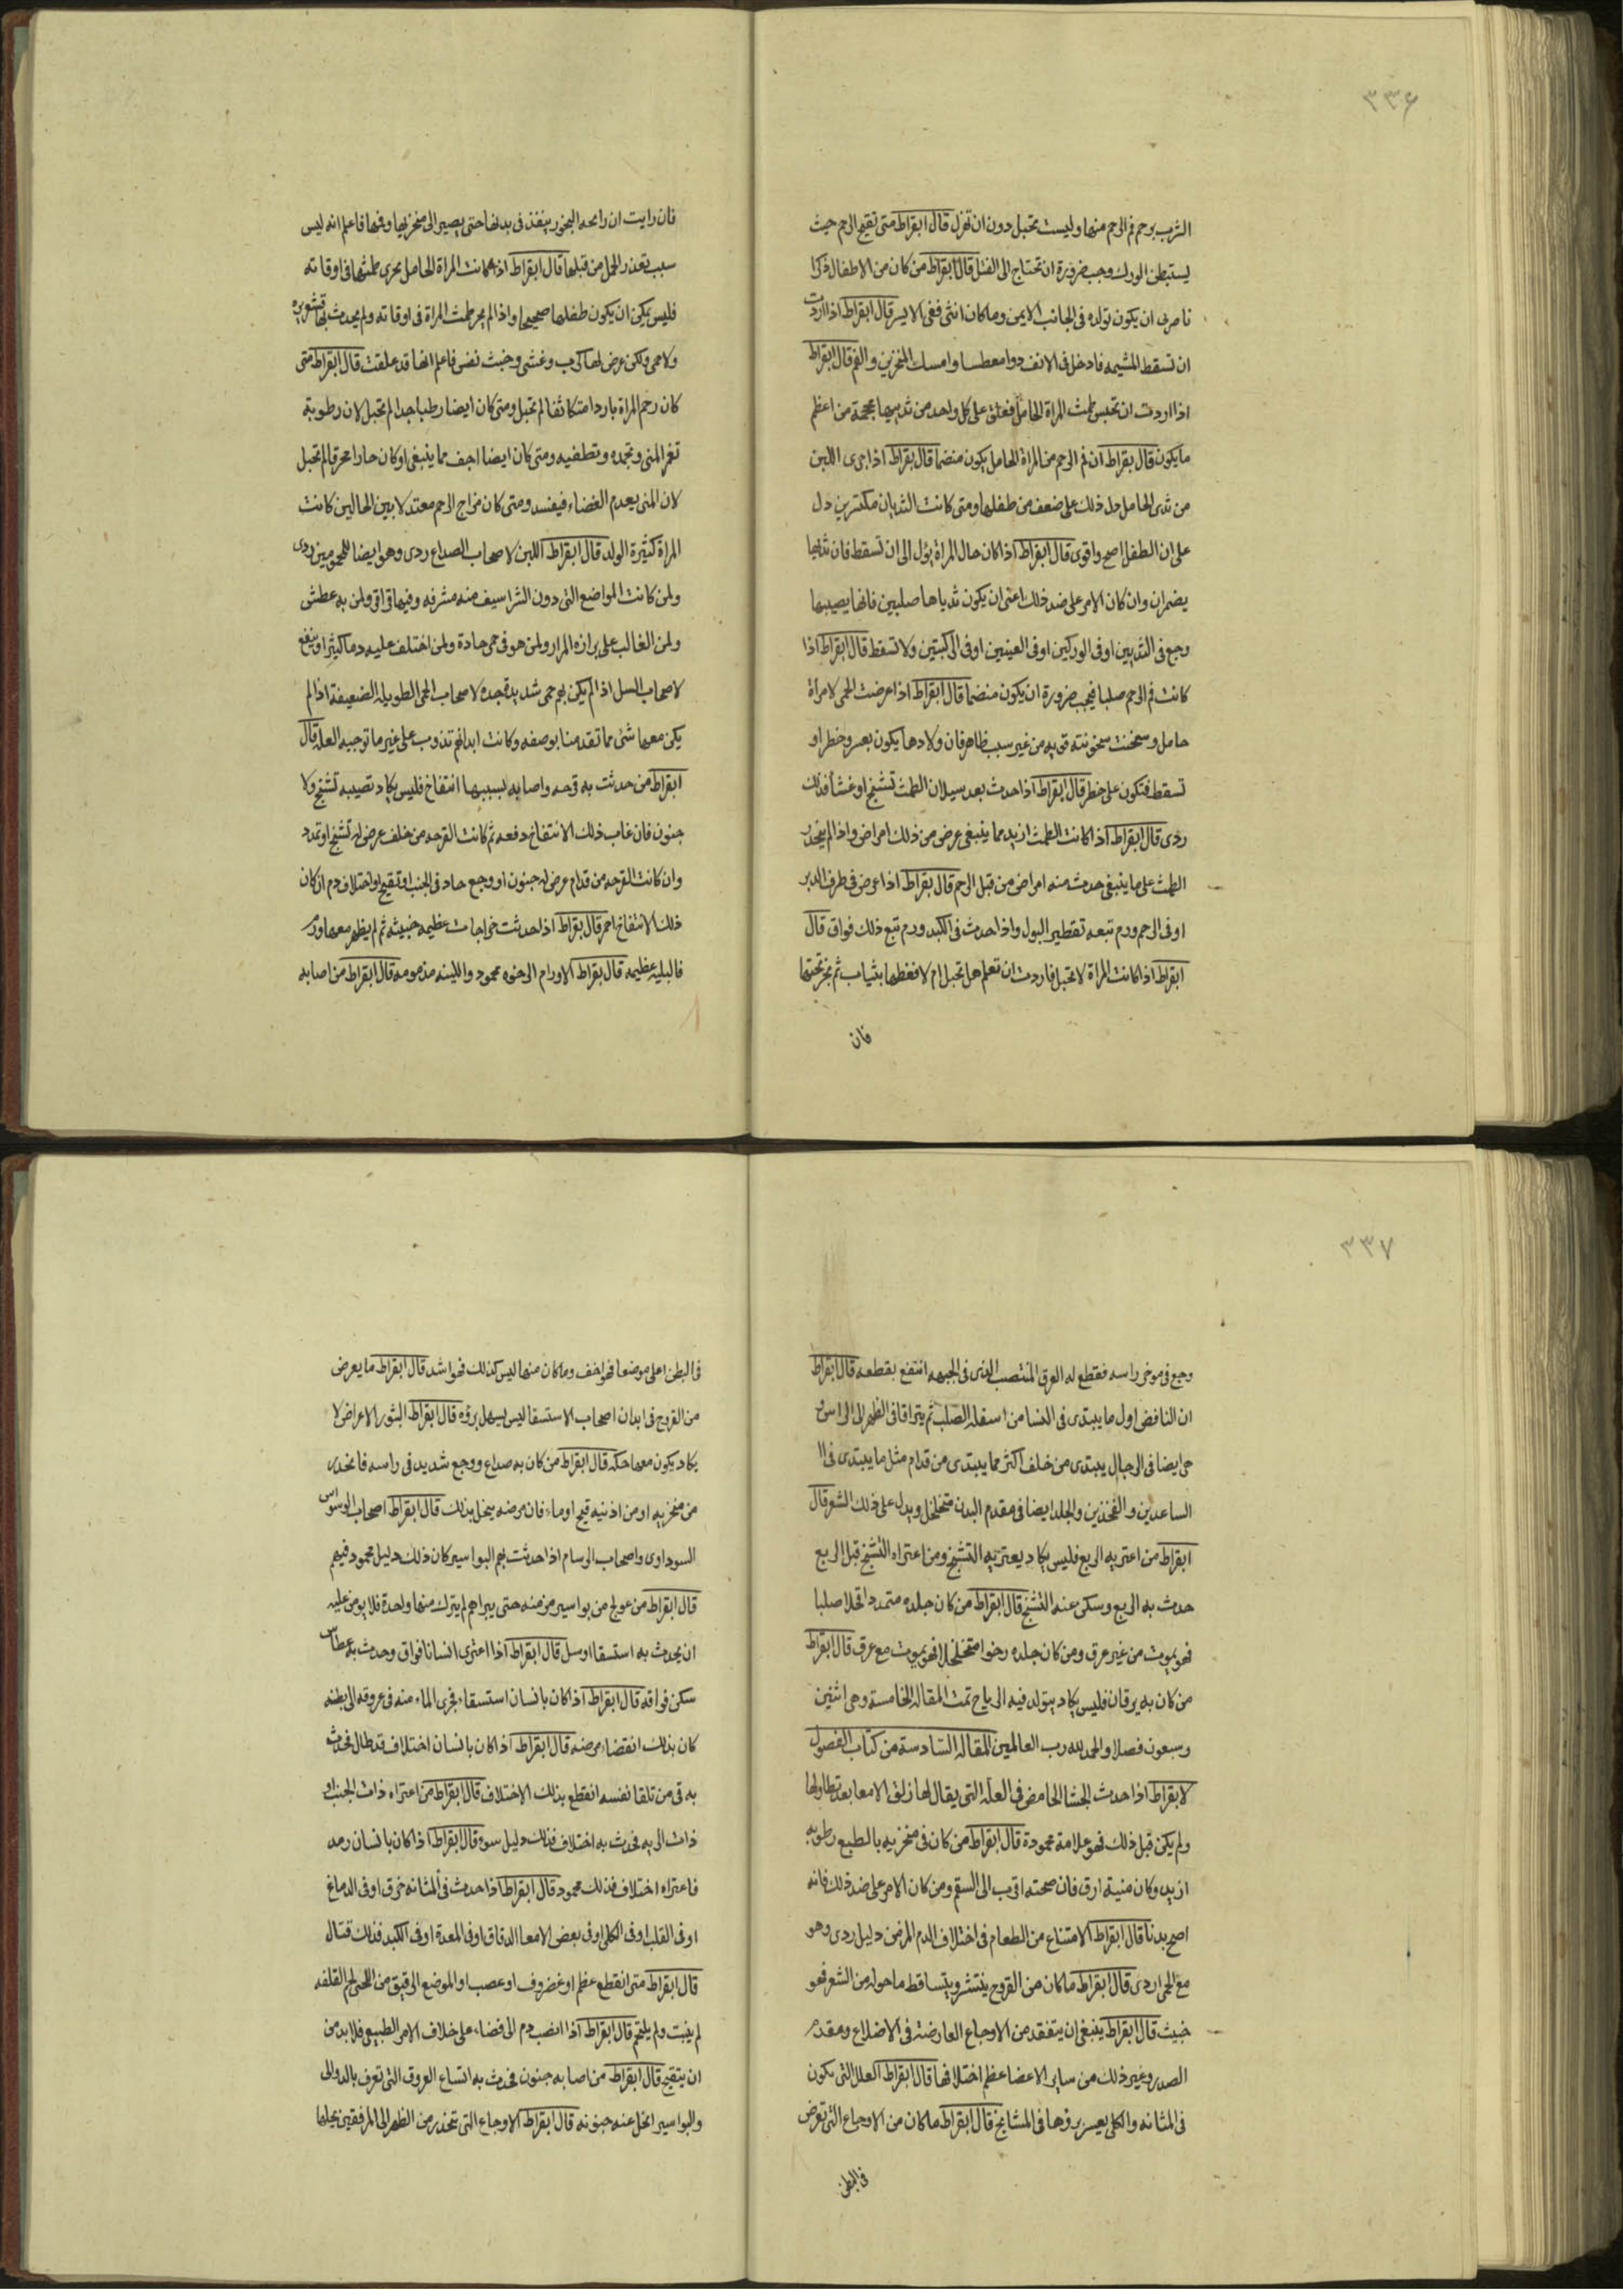 ٣٣٦
الثرب يرحم فم الرحم منها وليست تحبل دون ان تهزل قال ابقراط متى تقيح الرحم حيث
يستبطن الورك وجب ضرورة ان تحتاج الى الفتل قال ابقراط من كان من الاطفال ذكرا
فاحرى ان يكون تولده فى الجانب الايمن وما كان انثى ففى الايسر قال ابقراط اذا اردت
ان تسقط المشيمه فادخل فى الانف دوا معطسا وامسك المنخرين والفم قال ابقراط
اذا اردت ان تحبس طمث المراة الحامل فعلق على كل واحد من ثدييها محجمة من اعظم
مايكون قال بقراط ان فم الرحم من المراة الحامل يكون منضما قال بقراط اذا جرى اللبن
من ثدى الحامل دل ذلك على ضعف من طفلها ومتى كانت الثديان مكتنزين دل
على ان الطفل اصح واقوى قال ابقراط اذا كان حال المراة يؤل الى ان تسقط فان ثدييها
يضمران وان كان الامر على ضد ذلك اعنى ان يكون ثدياها صلبين فانها يصيبها
وجع فى الثديين او فى الوركين او فى العينين او فى الركبتين ولا تسقط قال ابقراط اذا
كانت فم الرحم صلبا فيجب ضرورة ان يكون منضما قال ابقراط اذا عرضت الحمى لامراة
حامل وسخنت سخونته قويه من غير سبب ظاهر فان ولادها يكون بعسر وخطر او
تسقط فتكون على خطر قال ابقراط اذا حدث بعد سيلان الطمث تشنج او غشا فذلك
ردى قال ابقراط اذا كانت الطمث ازيد مما ينبغى عرض من ذلك امراض واذا لم ينحدر
الطمث على ما ينبغى حدث منه امراض من قبل الرحم قال بقراط اذا عرض فى طرف الدبر
او فى الرحم ورم تبعه تقطير البول واذا حدث فى الكبد ورم تبع ذلك فواق قال
ابقراط اذا كانت المراة لا تحبل فاردت ان تعلم هل تحبل ام لا فغطها بثياب ثم بخر تحتها
فان
فان رايت ان رايحه البخور ينفذ فى بدنها حتى يصير الى منخريها وفمها فاعلم انه ليس
سبب تعذر الحمل من قبلها قال ابقراط اذا كانت المراة الحامل يجرى طمثها فى اوقاته
فليس يمكن ان يكون طفلها صحيحا واذا لم يجر طمث المراة فى اوقاته ولم يحدث بها قشعريره
ولا حمى ولكن عرض لها كرب وغشى وخبث نفس فاعلم انها قد علقت قال ابقراط متى
كان رحم المراة باردا متكاثفا لم تحبل ومتى كان ايضا رطبا جدا لم تحبل لان رطوبة
تغمر المنى وتجمده وتطفيه ومتى كان ايضا اجف مما ينبغى او كان حارا محرقا لم تحبل
لان المنى يعدم الغضاء فيفسد ومتى كان مزاج الرحم معتدلا بين الحالين كانت
المراة كثيرة الولد قال ابقراط اللبن لاصحاب الصداع ردى وهو ايضا للمحمومين ردى
ولمن كانت المواضع التى دون الشراسيف منه مشرفه وفيها قراقر ولمن به عطش
ولمن الغالب على برازه المرار ولمن هو فى حمى حادة ولمن اختلف عليه دما كثيرا وينفع
لاصحاب السل اذا لم يكن بهم حمى شديدة جده لاصحاب الحمى الطويله الضعيفة اذا لم
يكن معها شئ مما تقدمنا بوصفه وكانت ابدانهم تذوب على غير ما توجبه العله قال
ابقراط من حدثت به قرحه واصابه بسببها انتفاخ فليس يكاد تصيبه تشنج ولا
جنون فان غاب ذلك الانتفاخ دفعه ثم كانت القرحه من خلف عرض له تشنج او تمدد
وان كانت القرحه من قدام عرض له جنون او وجع حاد فى الجنب او تقيح او اختلاف دم ان كان
ذلك الانتفاخ احمر قال بقراط اذا حدثت خراجات عظيمه خبيثه ثم لم يظهر معها ورم
فالبليه عظيمه قال بقراط الاورام الرخوه محمود واللينه مذمومه قال ابقراط من اصابه
٣٣٧
وجع فى موخر راسه فقطع له العرق المنتصب الذى فى الجبهه انتفع بقطعه قال ابقراط
ان النافض اول ما يبتدى فى النسا من اسفله الصلب ثم يتراقا فى الظهر الى الراس و
حى ايضا فى الرجال يبتدى من خلف اكثر مما يبتدى من قدام مثل ما يبتدى فى ال
الساعدين والفخذين والجلد ايضا فى مقدم البدن متخلخل ويدل على ذلك الشعر قال
ابقراط من اعتريه الربع فليس يكاد يعتريه التشنج ومن اعتراه التشنج قبل الربع
حدث به الربع وسكن عنه التشنج قال ابقراط من كان جلده متمددا قحلا صلبا
فهو يموت من غير عرق ومن كان جلده رخوا متخلخلا فهو يموت مع عرق قال ابقراط
من كان به يرقان فليس يكاد يتولد فيه الرياح تمت المقاله الخامسة وهى اثنين
وسبعون فصلا والحمد لله رب العالمين المقاله السادسة من كتاب الفصول
لابقراط اذا حدث الجشا الحامض فى العله التى يقال لها زلق الامعا بعد تطاولها
ولم يكن قبل ذلك فهو علامة محمودة قال ابقراط من كان فى منخريه بالطبع رطوبه
ازيد وكان منيه ارق فان صحته اقرب الى السقم ومن كان الامر على ضد ذلك فانه
اصح بدنا قال ابقراط الامتناع من الطعام فى اختلاف الدم المزمن دليل ردى وهو
مع الحمى اردى قال ابقراط ما كان من القروح ينتثر ويتساقط ما حوله من الشعر فهو
خبيث قال ابقراط ينبغى ان يتفقد من الاوجاع العارضه فى الاضلاع ومقدم
الصدر وغير ذلك من ساير الاعضا عظم اختلافها قال ابقراط العلل التى تكون
فى المثانه والكلى يعسر بروها فى المشايخ قال ابقراط ما كان من الاوجاع التى تعرض
فى البطن
فى البطن اعلى موضعا فهو اخف وما كان منها ليس كذلك فهو اشد قال ابقراط ما يعرض
من القروح فى ابدان اصحاب الاستسقا ليس يسهل بروه قال ابقراط البثور الاعراض لا
يكاد يكون معها حكه قال ابقراط من كان به صداع ووجع شديد فى راسه فانحدر
من منخريه او من اذنيه قيح او ماء فان مرضه ينحل بذلك قال ابقراط اصحاب الوسواس
السوداوى واصحاب البرسام اذا حدثت بهم البواسير كان ذلك دليل محمود فيهم
قال ابقراط من عولج من بواسير مزمنه حتى يبرا ثم لم يترك منها واحدة فلا يومن عليه
ان يحدث به استسقا او سل قال ابقراط اذا اعترى انسانا فواق وحدث به عطاس
سكن فواقه قال ابقراط اذا كان بانسان استسقاء فجرى الماء منه فى عروقه الى بطنه
كان بذلك انقضاء مرضه قال ابقراط اذا كان بانسان اختلاف قد طال فحدث
به قى من تلقا نفسه انقطع بذلك الاختلاف قال ابقراط من اعتراه ذات الجنب او
ذات الريه فحدث به اختلاف فذلك دليل سوء قال ابقراط اذا كان بانسان رمد
فاعتراه اختلاف فذلك محمود قال ابقراط اذا حدث فى المثانه خرق او فى الدماغ
او فى القلب او فى الكلى او فى بعض الامعا الدقاق او فى المعدة او فى الكبد فذلك قتال
قال ابقراط متى انقطع عظم او غضروف او عصب او الموضع الرقيق من اللحى او القلفه
لم ينبت ولم يلتحم قال ابقراط اذا انصب دم الى فضاء على خلاف الامر الطبيعى فلا بد من
ان يتقيح قال ابقراط من اصابه جنون فحدث به اتساع العروق التى تعرف بالدوالى
والبواسير انحل عنه جنونه قال ابقراط الاوجاع التى تنحدر من الظهر الى المرفقين يحلها